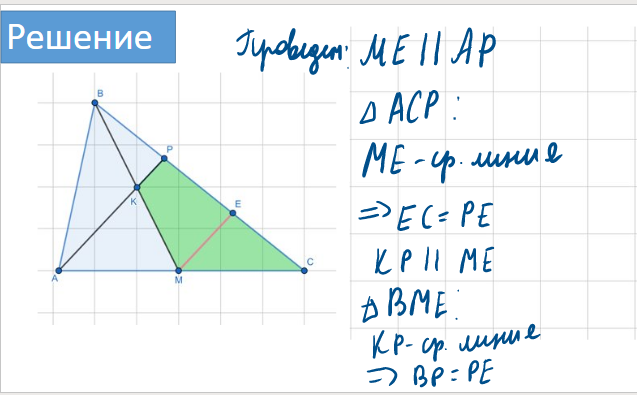 Решение
Проведем: ME || AP
△ACP:
ME - ср. линия
=> EC = PE
KP || ME
△BME:
KP - ср. линия
=> BP = PE
B
P
K
E
C
A
M